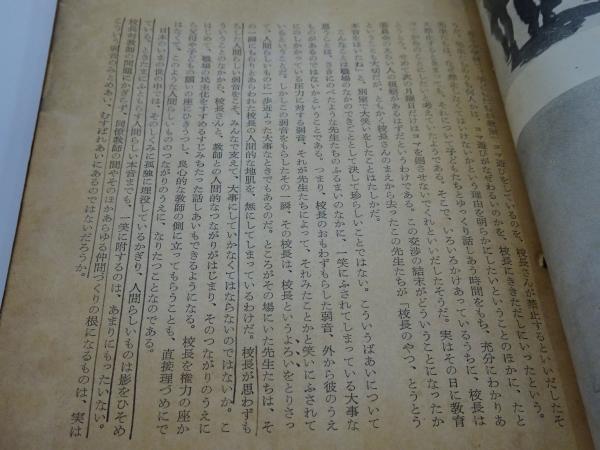 コマ遊びをしているのを、校長さんが禁止するといいだしたそ
うだ。
コマ遊びがなぜわるいのかを、校長にききただしにいったという。
なぜしなければいけないかという理由を明らかにしたいということのほかに、たと
それについて子どもたちとゆっくり話しあう時間をもち、充分にわかりあ
考えていたようである。そこで、いろいろかけあっているうちに、校長は
月曜日だけはコマを廻させないでくれといいだしたそうだ。実はその日に教育
委員会のえらい人の視察があるはずだというわけである。この交渉の結末がどういうことになったか
ということも大切だが、ともかく校長さんのまえから去ったこの先生たちが「校長のやつ、とうとう
本音をはいたね」と、別室で大笑いをしたことはたしかだ。
こんなことは職場のなかのできごととして決して珍らしいことではない。こういうばあいについて
思うことは、さきにのべたような先生たちのふるまいのなかに、一笑にふされてしまっている大事な
ものがあるのではないかということである。つまり、校長のおもわずもらした弱音、外から彼のうえ
にのしかかっている圧力に対する弱音、それが先生たちによって、それみたことかと笑いにふされて
いるということだ。しかしこの弱音をもらしたその一瞬、その校長は、校長というよろいをとりさっ
て、人間らしいものに一歩近よった大事なときでもあるのだ。ところがその場にいた先生たちは、そ
の一瞬にもらりとあらわれた校長の人間的な地肌を、無にしてしまっているわけだ。校長が思わずも
らした人間らしい弱音をこそ、みんなで支えて、大事にしていかなくてはならないのではないか。こ
ういうことのなかから、校長さんと、教師との人間的なつながりがはじまり、そのつながりのうえに
はじめて、職場の民主化をすすめるすじみちだった話しあいもできるようになる。校長を権力の座か
ら父母や子どもの願いの座にひきうつし、良心的な教師の側に立ってもらうことも、直接理づめにで
はなくて、このような人間らしいもののつながりのうえに、なりたつことなのである。
日本のいまの世の中では、そのしくみに孤独に埋没しているかぎり、人間らしいものは影をひそめ
ている。ときたまこぼれだす人間らしい本音までも、一笑に附するのは、あまりにもったいない。
校長対教師の問題にかぎらず、同僚教師の間やそのほかあらゆる仲間づくりの根になるものは、実は
こういう弱音のみとめあい、むすばれあいにあるのではないだろうか。